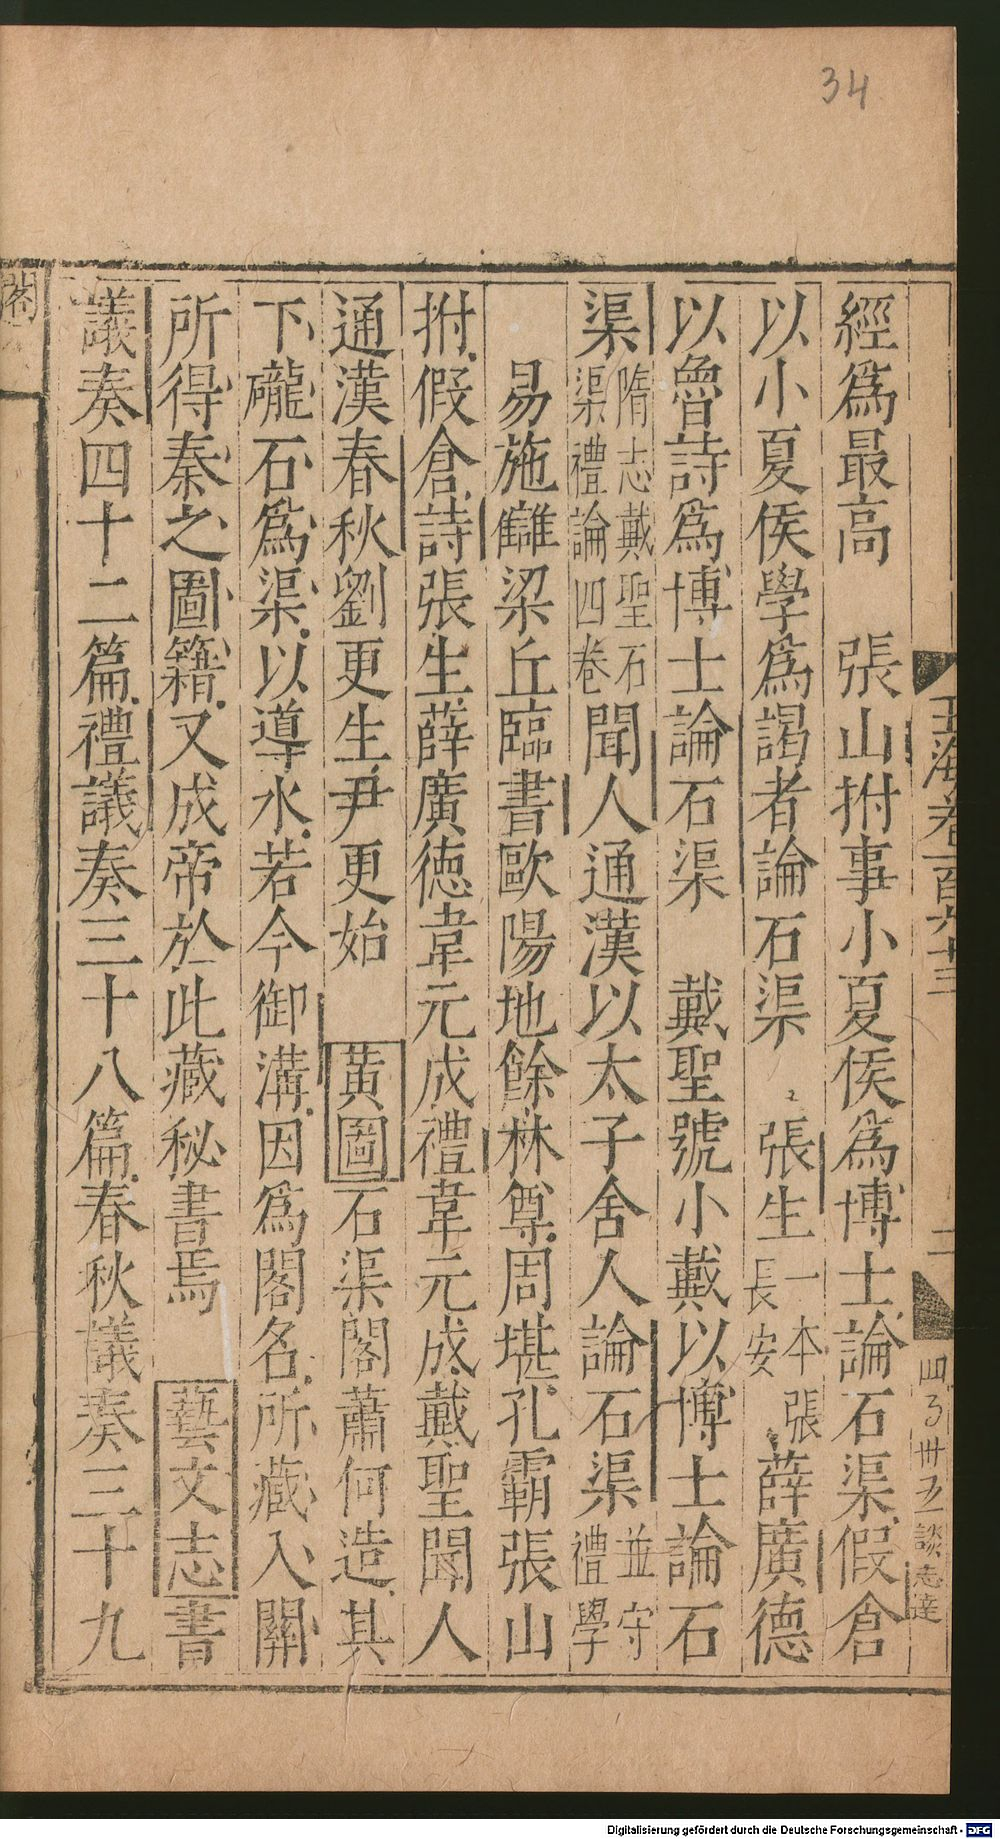 34
玉海卷一百六十三
二
四ろ卅五
談志達
經爲最高　張山拊事小夏侯爲博士論石渠假倉
以小夏侯學爲謁者論石渠　張生一本張長安薛廣德
以魯詩爲博士論石渠　戴聖號小戴以博士論石
渠隋志戴聖石渠禮論四卷聞人通漢以太子舍人論石渠並守禮學
易施讎梁丘臨書歐陽地餘林尊周堪孔霸張山
拊假倉詩張生薛廣德韋元成禮韋元成戴聖聞人
通漢春秋劉更生尹更始　黃圖石渠閣蕭何造其
下礲石爲渠以導水若今御溝因爲閣名所藏入關
所得秦之圖籍又成帝於此藏秘書焉　藝文志書
議奏四十二篇禮議奏三十八篇春秋議奏三十九
閣
Digitalisierung gefördert durch die Deutsche Forschungsgemeinschaft - DFG